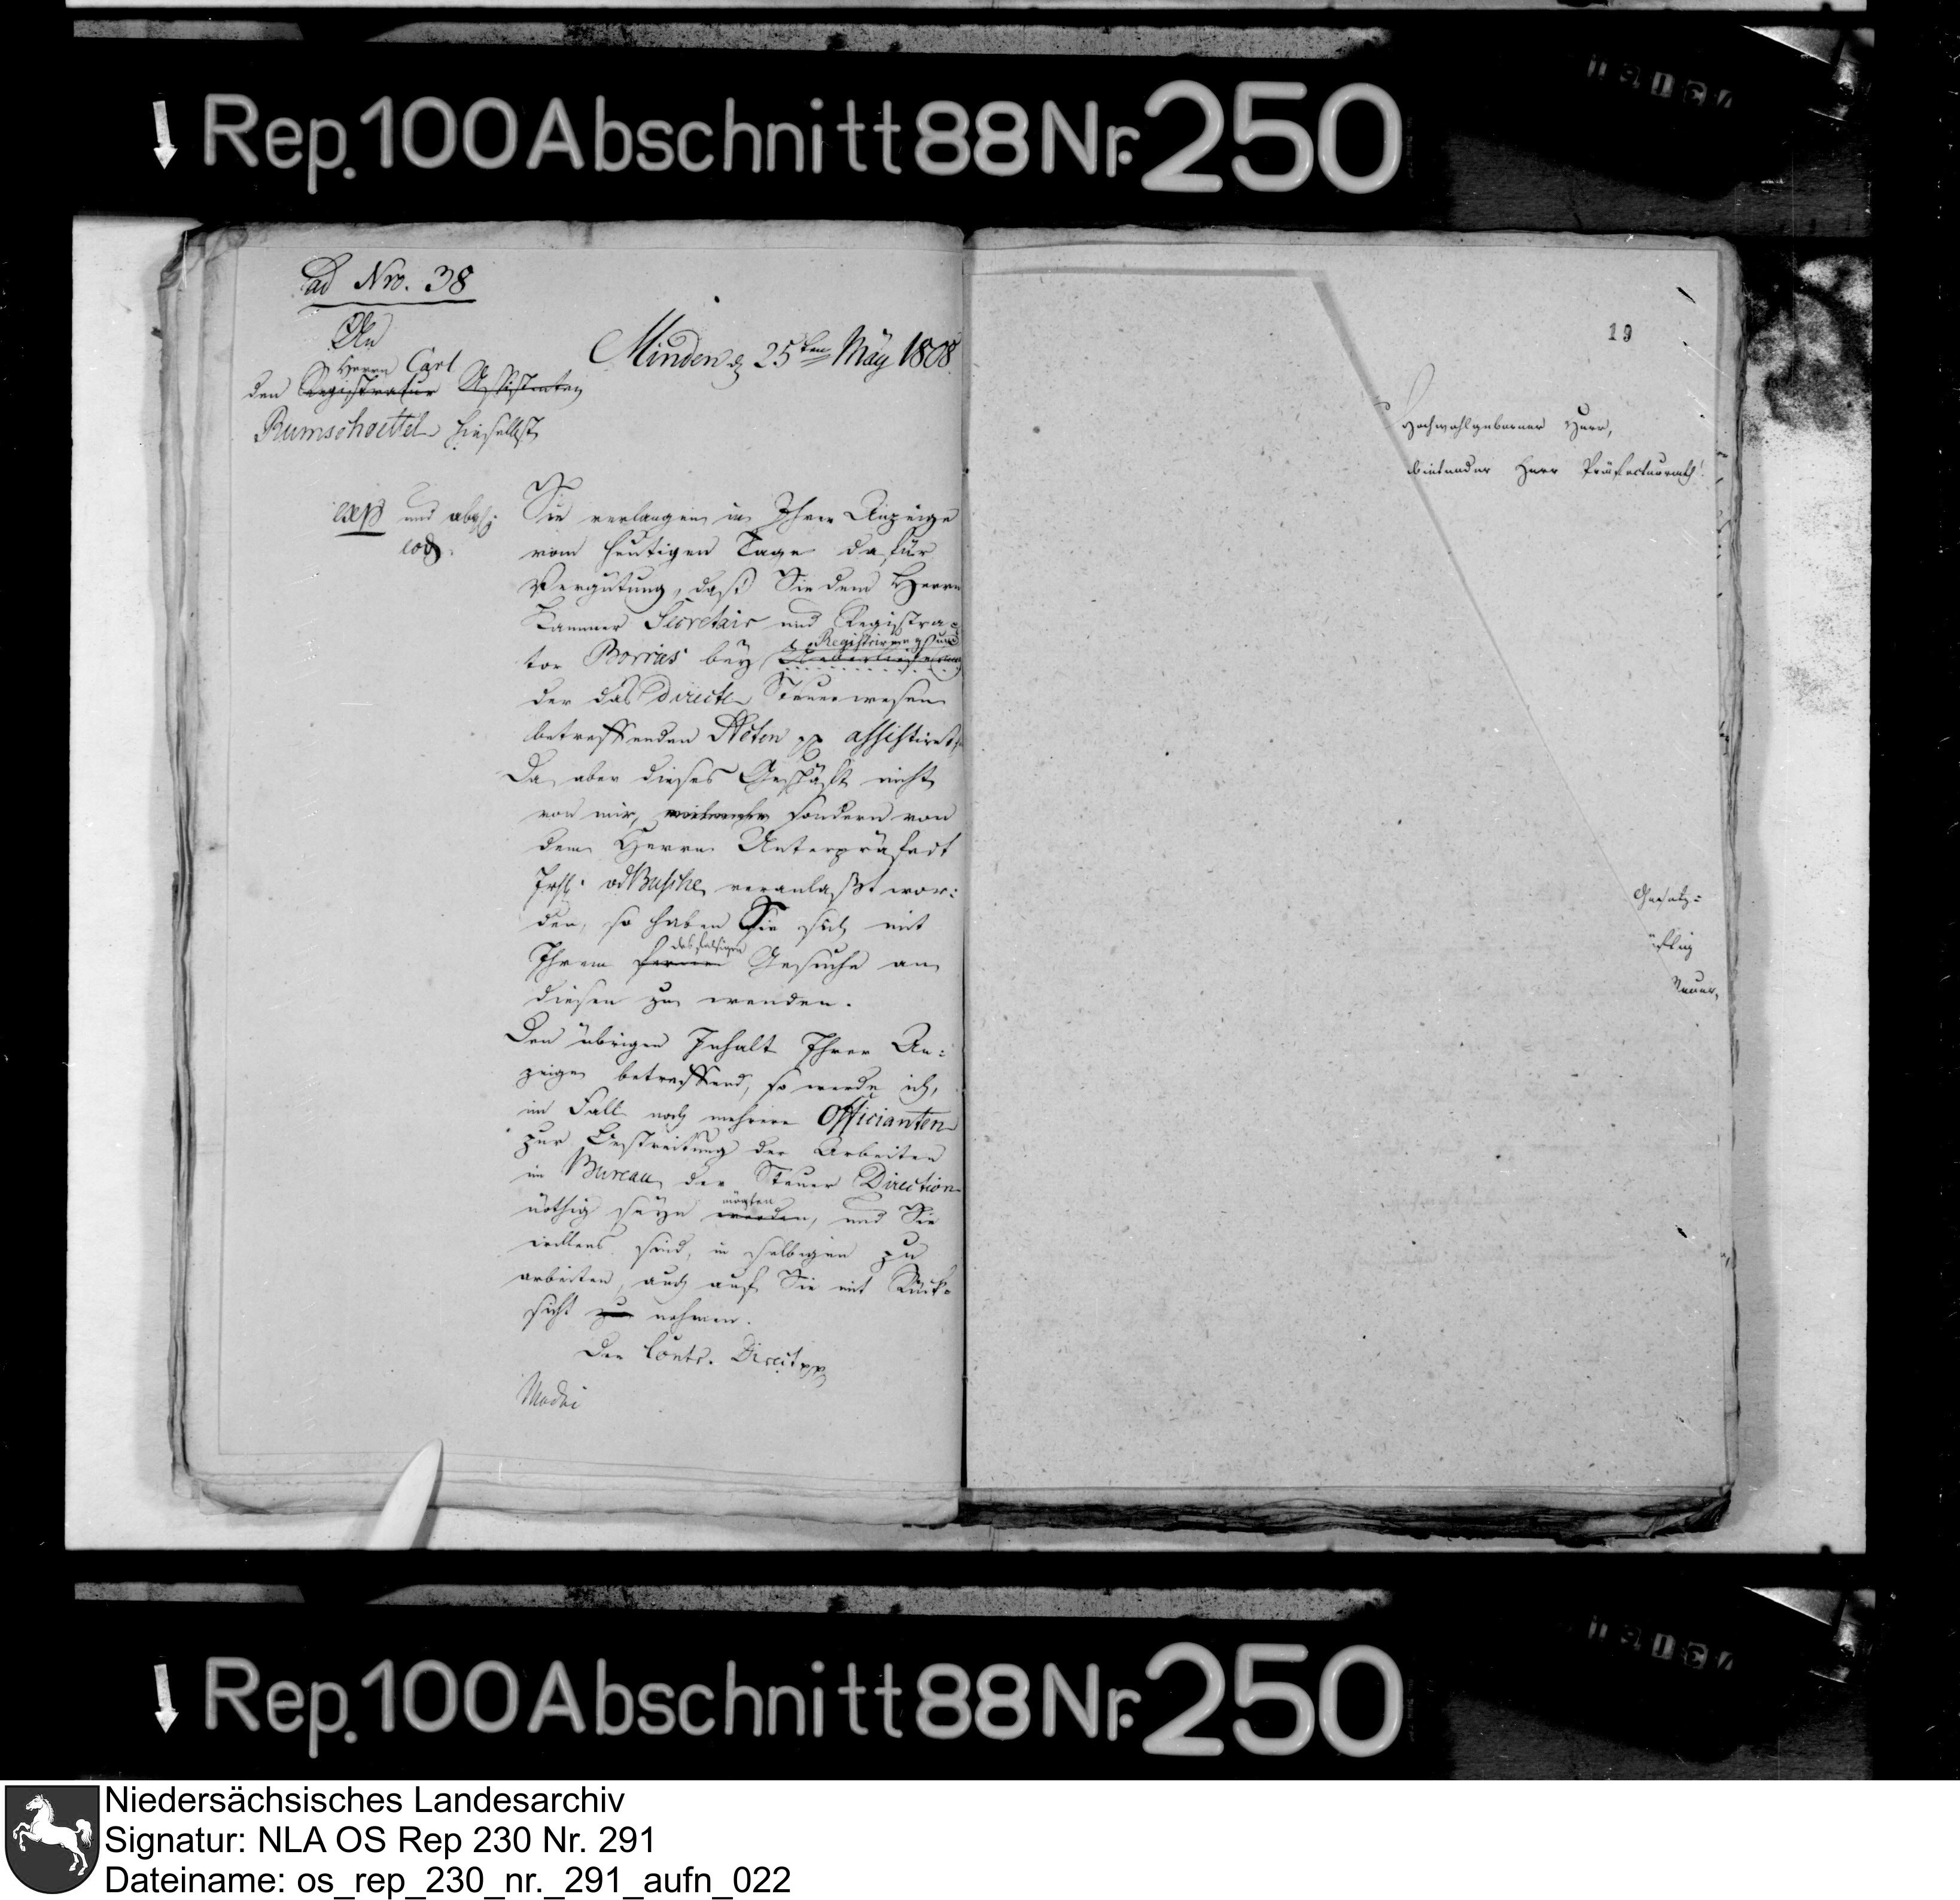 Rep. 100 Abschnitt 88 Nr. 250
ad Nro. 38
An
Herrn Carl
den Registratur Assistenten
Rumschoettel hieselbst
Minden d 25ten May 1808.
exp und abges.
eod.
Sie verlangen in Ihrer Anzeige
vom heutigen Tage dafür
Vergütung, daß Sie dem Herrn
Kammer Secretair und Registra-
tor Borries bey
Registrirung und
Ueberlieferung
der das directe Steuerwesen
betreffenden Acten pp assistirt.
Da aber dieses Geschäft nicht
von mir, sondern von
dem Herrn Unterpräfect
Frhl. vd Busche veranlaßt wor:
den, so haben Sie sich mit
desfalsigen
Ihrem fernen Gesuche an
diesen zu wenden.
Den übrigen Inhalt Ihrer An:
zeige betreffend, so werde ich,
im Fall noch mehrere Officianten
zur Bestreitung der Arbeiten
im Bureau der Steuer Direction
mögten
nöthig seyn werden, und Sie
willens sind, in selbigen zu
arbeiten, auch auf Sie mit Rück-
sicht zu nehmen.
Der Contr. Direct pp
19
Hochwohlgeborner Herr,
bietender Herr Präfecturrath!
Gesetz:
Rep. 100 Abschnitt 88 Nr. 250
Niedersächsisches Landesarchiv
Signatur: NLA OS Rep 230 Nr. 291
Dateiname: os_rep_230_nr._291_aufn_022